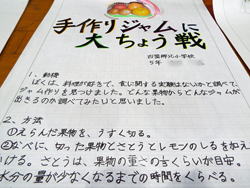 手作りジャムに
大ちょう戦
小学校
5年
1. 動機
ぼくは、料理が好きで、食に関する実験はないかと調べて、
ジャム作りを思つけました。どんな果物からどんなジャムが
出きるのか調べてみたいと思いました。
2. 方法
①えらんだ果物を、うすく切る。
②なべに、切った果物とさとうとレモンのしるを加え
ける。さとうは、果物の重さの
水分の量が少なくなるまでの時間をくらべる。